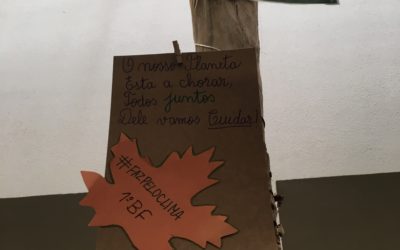 O nosso Planeta
Esta a chorar,
Todos juntos
Dele vamos Cuidar!
#FAZPELOCLIMA
1º BF